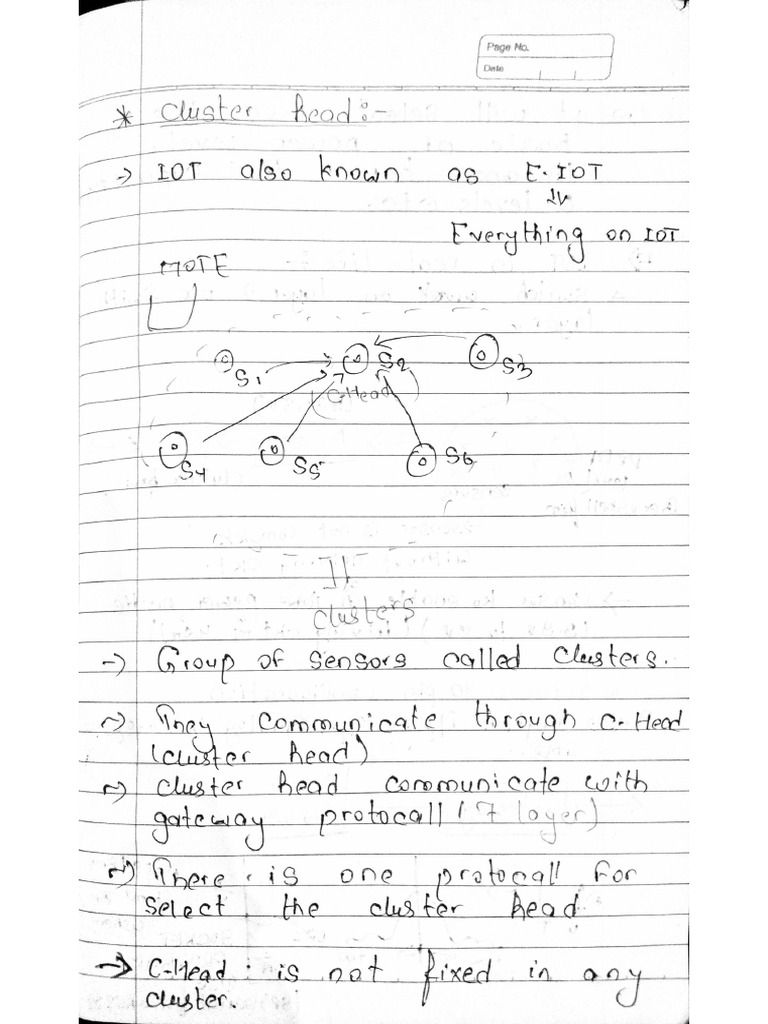 Page No.
Date
* Cluster head:-
→ IOT also known as E.IOT
Everything on IOT
MOTE
S1 S2 S3
(C-Head)
S4 S5 S6
Clusters
→ Group of sensors called Clusters.
→ They communicate through C-Head
(cluster head)
→ cluster head communicate with
gateway protocall (7 layer)
→ There is one protocall for
select the cluster head
→ C-Head: is not fixed in any
cluster.